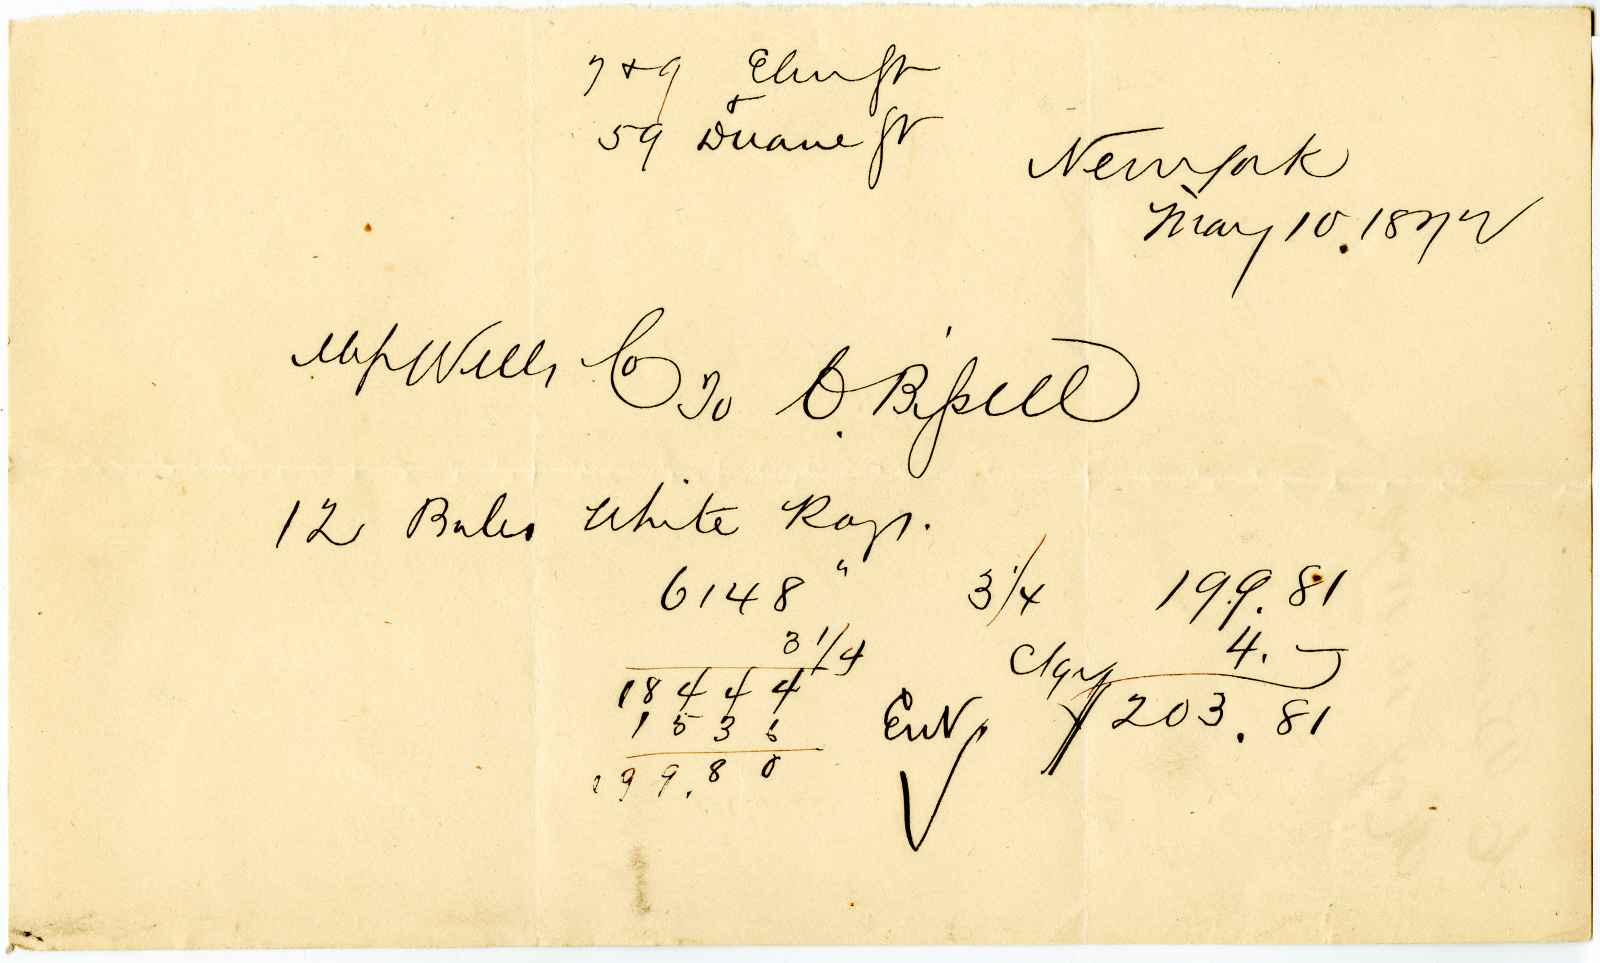 7 & 9 Elm St
&
59 Duane St
New York
May 10. 1872
Wells Co To O. Bissell
12 Bales White Rags.
6148 " 3 1/4 199.81
3 1/4 Ctgs 4. —
18444 Ent $203.81
1536
199.80